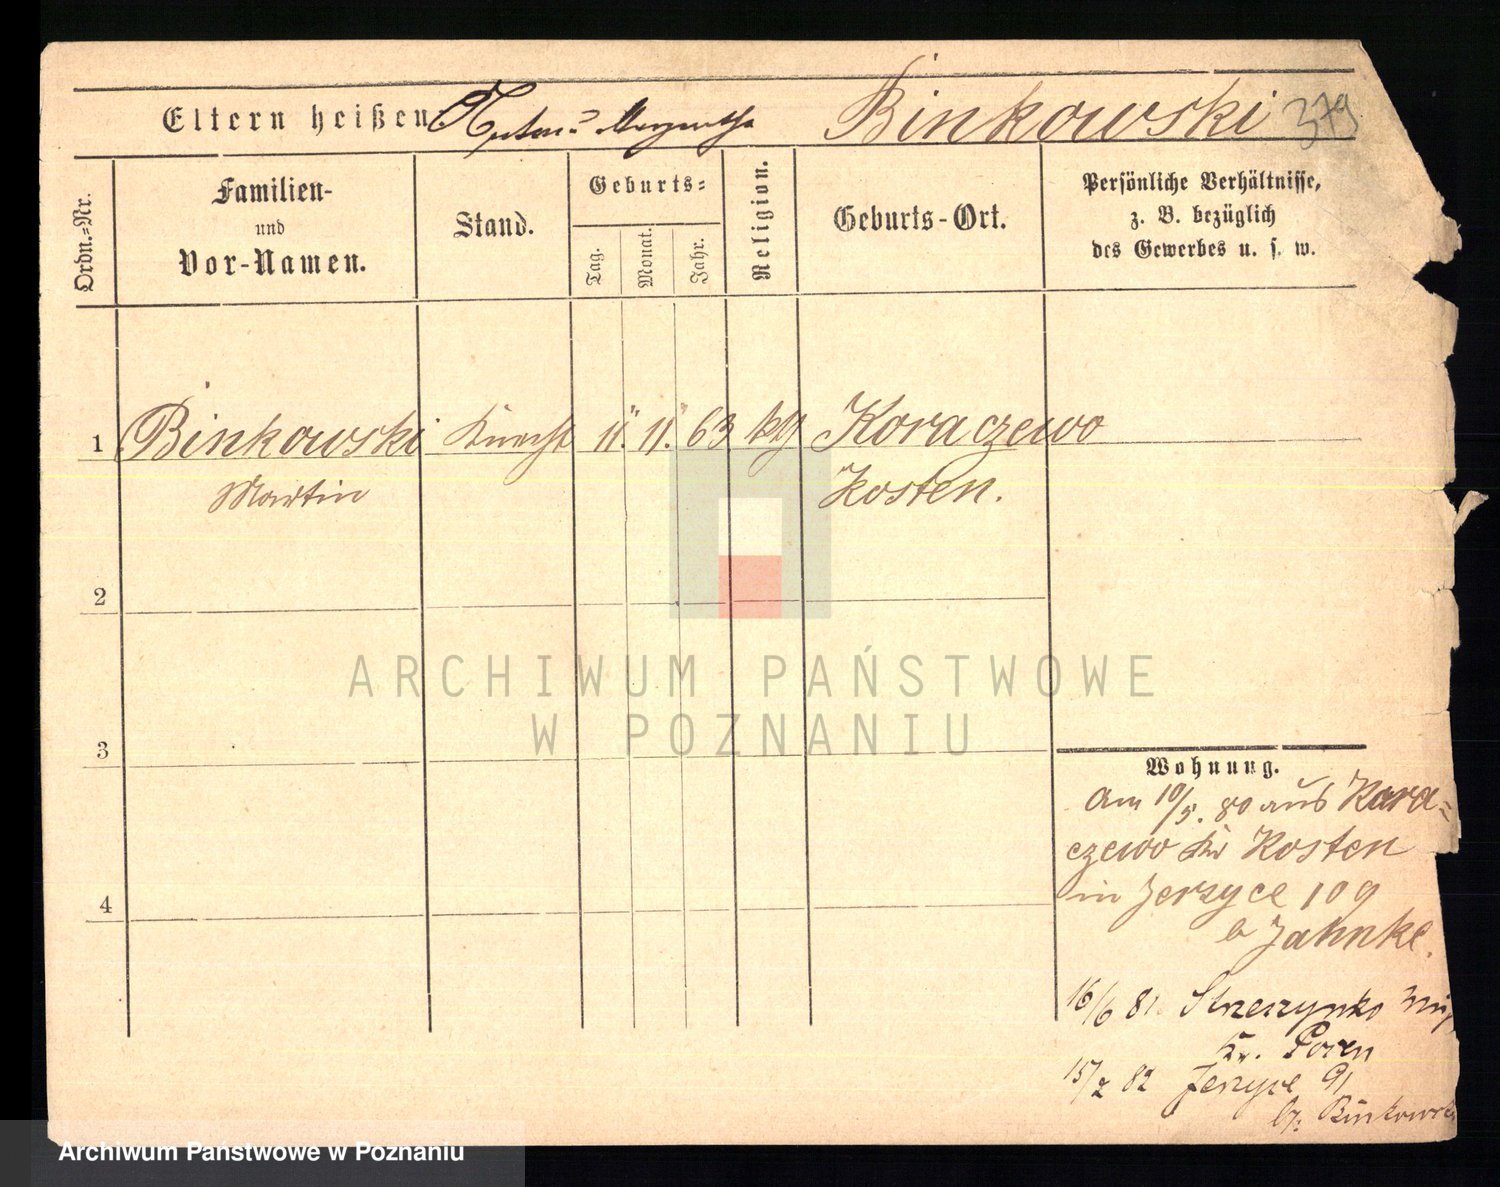 Eltern heißen Binkowski 379
Ordn.=Nr.
Familien-
und
Vor-Namen.
Stand.
Geburts=
Tag.
Monat.
Jahr.
Religion.
Geburts-Ort.
Persönliche Verhältnisse,
z. B. bezüglich
des Gewerbes u. s. w.
1 Binkowski Knecht 11. 11. 63 kth Koraczewo
Martin Kosten.
2
3
4
Wohnung.
Am 10/5. 80 aus Kora=
czewo Kr Kosten
in Jerzyce 109
b Jahnke.
16/6 81. Strzeszynko
Kr. Posen
15/2 82 Jerzyce 91
by: Binkowski
ARCHIWUM PAŃSTWOWE
W POZNANIU
Archiwum Państwowe w Poznaniu